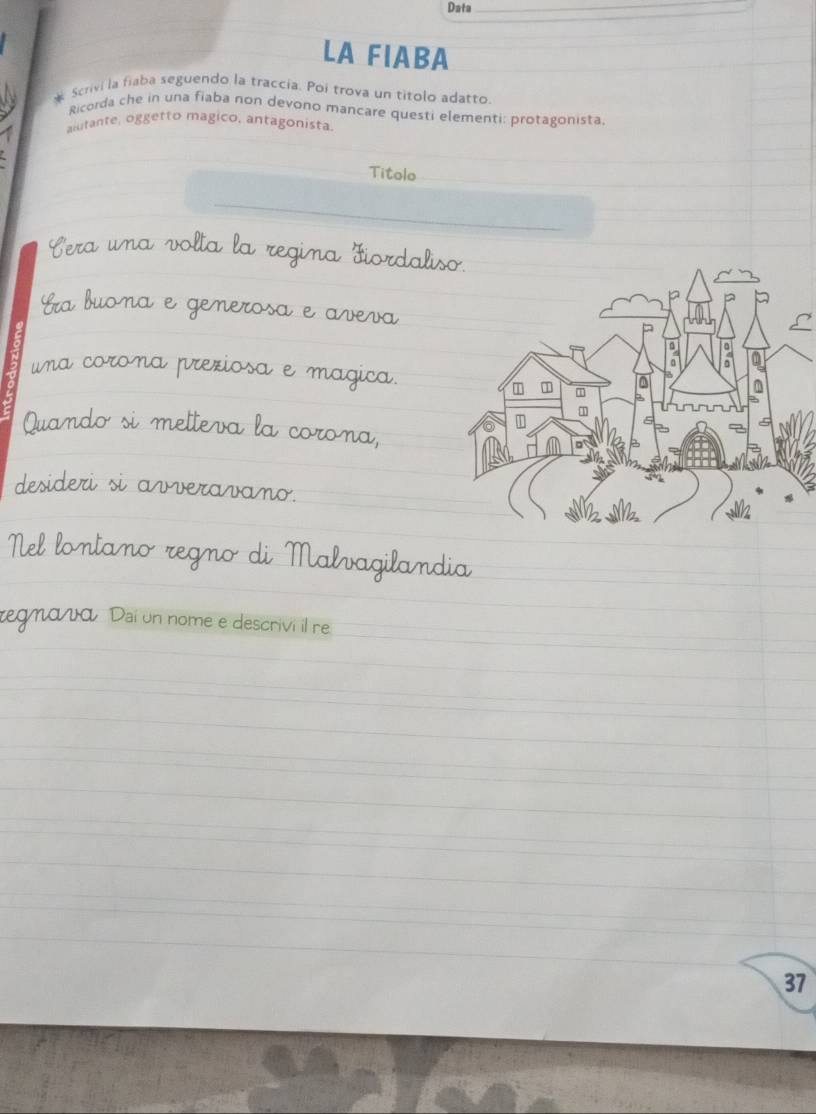 Data
LA FIABA
* Scrivi la fiaba seguendo la traccia. Poi trova un titolo adatto.
Ricorda che in una fiaba non devono mancare questi elementi: protagonista,
aiutante, oggetto magico, antagonista.
Titolo
Introduzione
C'era una volta la regina Fiordaliso.
Era buona e generosa e aveva
una corona preziosa e magica.
Quando si metteva la corona,
desideri si avveravano.
Nel lontano regno di Malvagilandia
regnava Dai un nome e descrivi il re
37